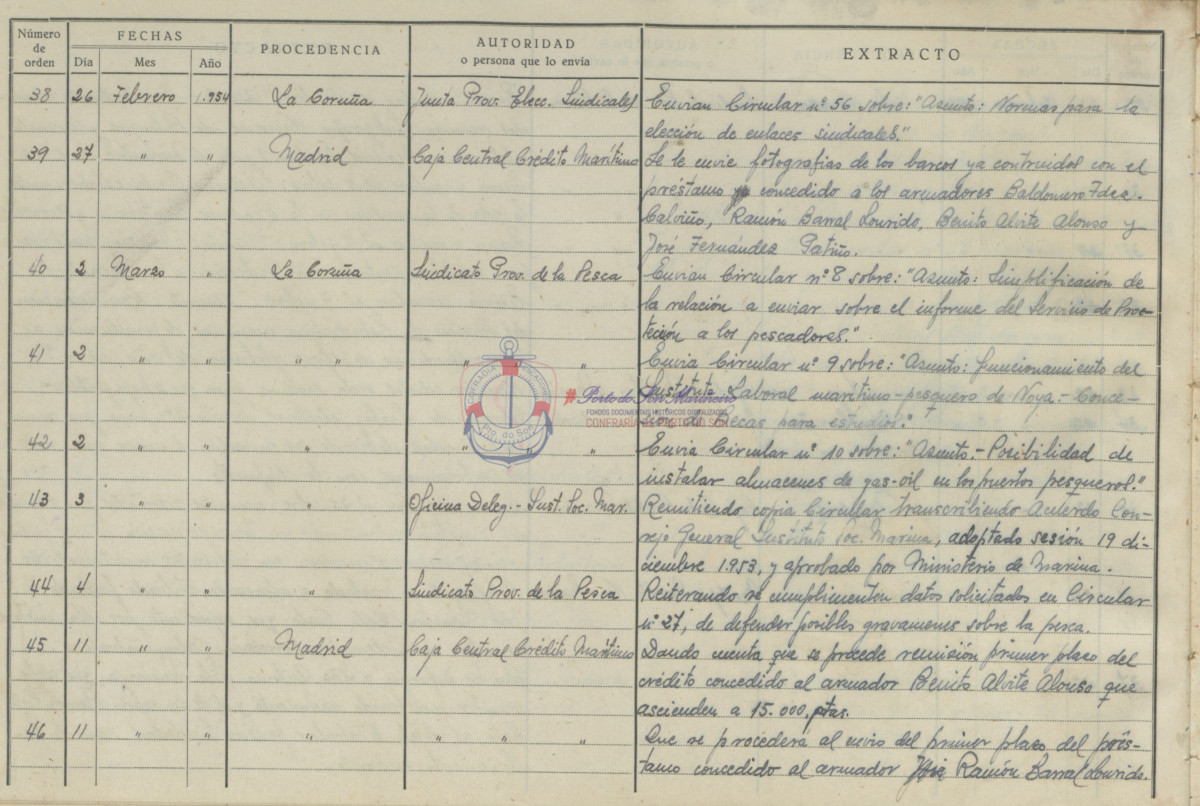 Número de orden FECHAS PROCEDENCIA AUTORIDAD o persona que lo envía EXTRACTO
Día Mes Año
38 26 Febrero 1.954 La Coruña Junta Prov. Elecc. Sindicales Envian Circular nº 56 sobre: "Asunto: Normas para la
elección de enlaces sindicales."
39 27 " " Madrid Caja Central Crédito Marítimo Se le envie fotografias de los barcos ya contruidos con el
préstamo concedido a los armadores Baldomero Fdez.
Calviño, Ramón Barral Lourido, Benito Alvite Alonso y
José Fernández Patiño.
40 2 Marzo " La Coruña Sindicato Prov. de la Pesca Envian Circular nº 8 sobre: "Asunto: Simplificación de
la relación a enviar sobre el informe del Servicio de Proc-
tección a los pescadores."
41 2 " " " " " " Envia Circular nº 9 sobre: "Asunto: funcionamiento del
Instituto Laboral marítimo-pesquero de Noya.- Conce-
sión de Becas para estudios."
CONFRADÍA PESCADORES
Pto. do Son
#Porto do Son Mariñeiro
FONDOS DOCUMENTAIS HISTÓRICOS DIGITALIZADOS
CONFRARÍA DE PORTO DO SON
42 2 " " " " " " Envia Circular nº 10 sobre: "Asunto.- Posibilidad de
instalar almacenes de gas-oil en los puertos pesqueros."
43 3 " " " Oficina Deleg.- Inst. Soc. Mar. Remitiendo copia Circular transcribiendo Acuerdo Con-
sejo General Instituto Soc. Marina, adoptado sesión 19 di-
ciembre 1.953, y aprobado por Ministerio de Marina.
44 4 " " " Sindicato Prov. de la Pesca Reiterando se cumplimenten datos solicitados en Circular
nº 27, de defender posibles gravamenes sobre la pesca.
45 11 " " Madrid Caja Central Crédito Marítimo Dando cuenta que se procede remisión primer plazo del
crédito concedido al armador Benito Alvite Alonso que
ascienden a 15.000, ptas.
46 11 " " " " " " Que se procederá al envio del primer plazo del prés-
tamo concedido al armador Ramón Barral Lourido.